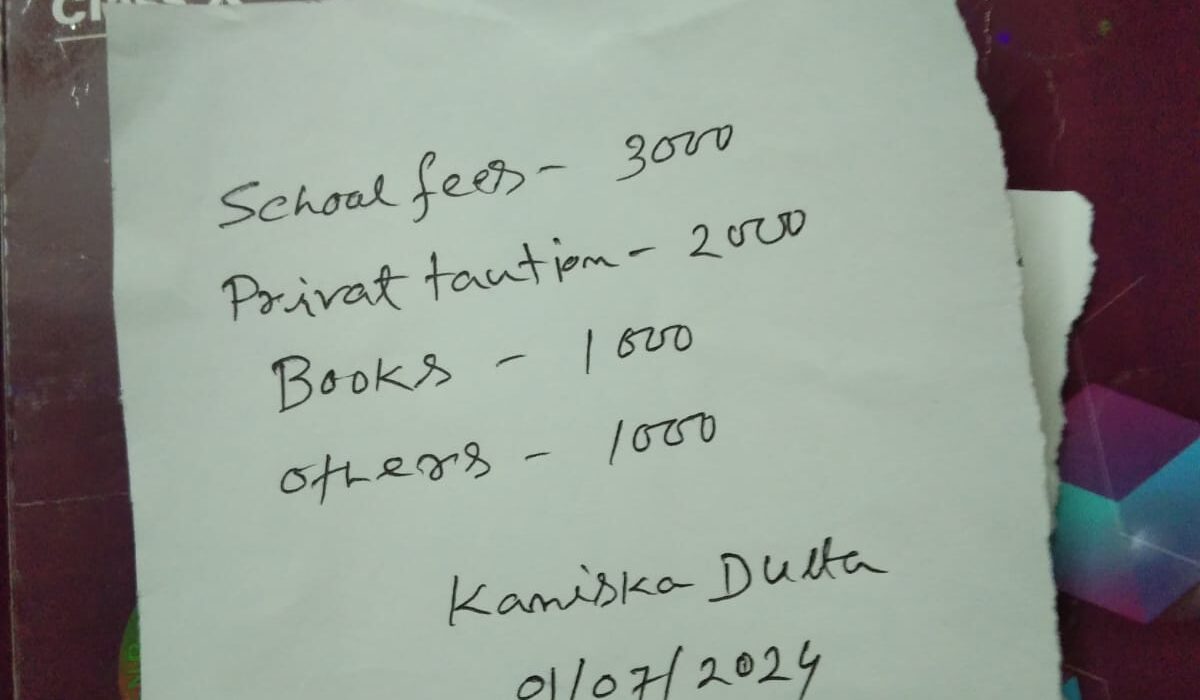 School fees - 3000
Privat taution - 2000
Books - 1000
others - 1000
Kaniska Dutta
01/07/2024